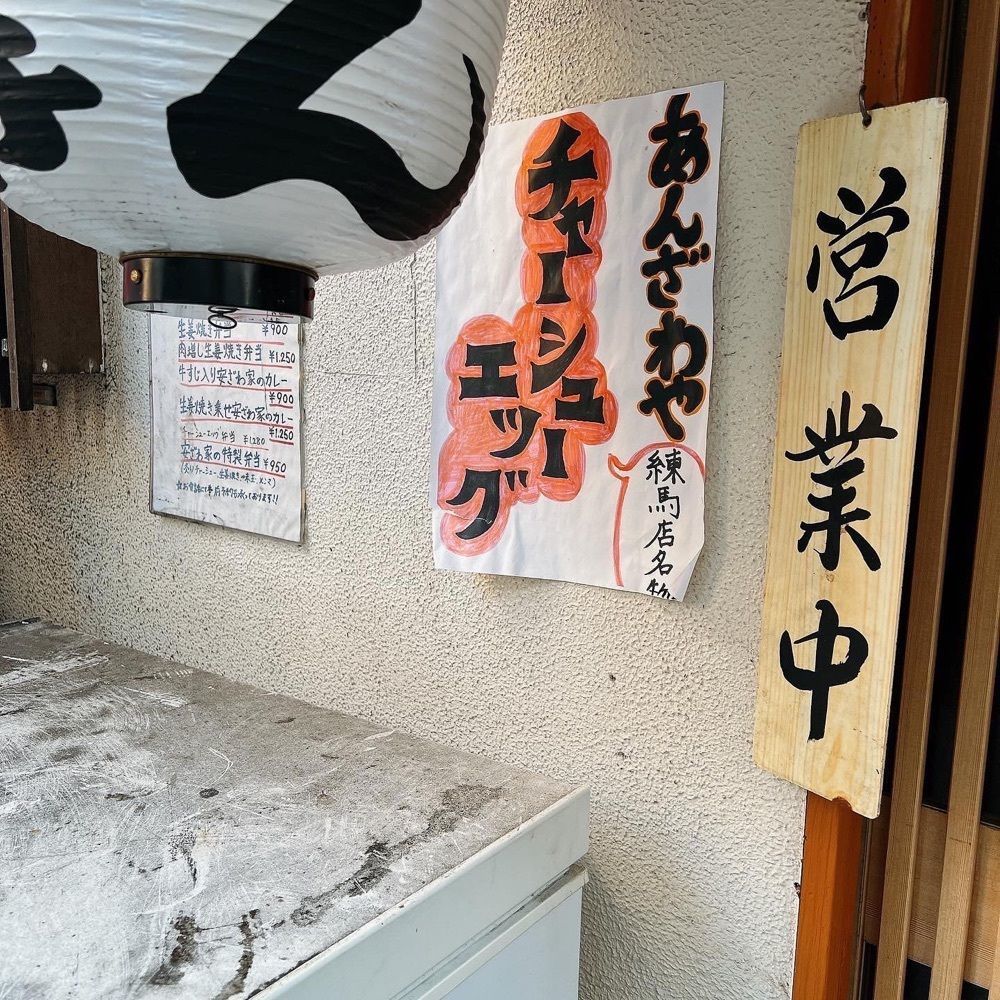 営業中
あんざわや
チャーシュー
エッグ
練馬店名物
生姜焼き弁当 ¥900
肉増し生姜焼き弁当 ¥1.250
牛すじ入り安ざわ家のカレー
¥900
生姜焼き乗せ安ざわ家のカレー
¥1.250
チャーシューエッグ弁当 ¥1280
安ざわ家の特製弁当 ¥950
く